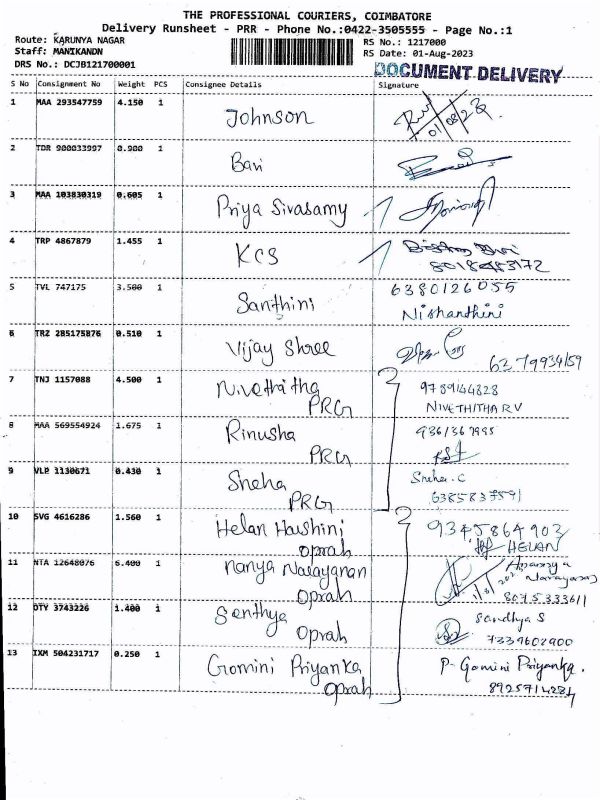 THE PROFESSIONAL COURIERS, COIMBATORE
Delivery Runsheet - PRR - Phone No.:0422-3505555 - Page No.:1
Route: KARUNYA NAGAR RS No.: 1217000
Staff: MANIKANDN RS Date: 01-Aug-2023
DRS No.: DCJB121700001 DOCUMENT DELIVERY
S No Consignment No Weight PCS Consignee Details Signature
1 MAA 293547759 4.150 1 Johnson 01/08/23
2 TDR 900033997 0.900 1 Bavi
3 MAA 103830319 0.605 1 Priya Sivasamy
4 TRP 4867879 1.455 1 KCS
8018483172
5 TVL 747175 3.500 1 Santhini 6380126055
Nishanthini
6 TRZ 285175876 0.510 1 Vijay Shree
6379934159
7 TNJ 1157088 4.500 1 Nivethitha 9789144828
PRG NIVETHITHA RV
8 MAA 569554924 1.675 1 Rinusha 9361367995
PRG
9 VLP 1130671 0.430 1 Sneha Sneha.C
PRG 6385837591
10 SVG 4616286 1.560 1 Helan Haushini 9345864903
oprah HELAN
11 NTA 12648076 6.400 1 nanya Narayanan
Narayanan
Oprah 8075333611
12 DTY 3743226 1.400 1 Senthya Sandhya S
Oprah 7339602900
13 IXM 504231717 0.250 1 Gomini Priyanka P. Gomini Priyanka.
oprah 8925714284